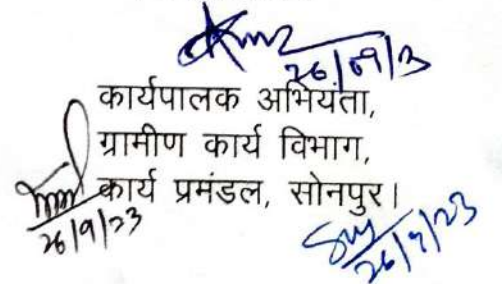 26/09/23
कार्यपालक अभियंता,
ग्रामीण कार्य विभाग,
कार्य प्रमंडल, सोनपुर।
26/9/23
26/9/23